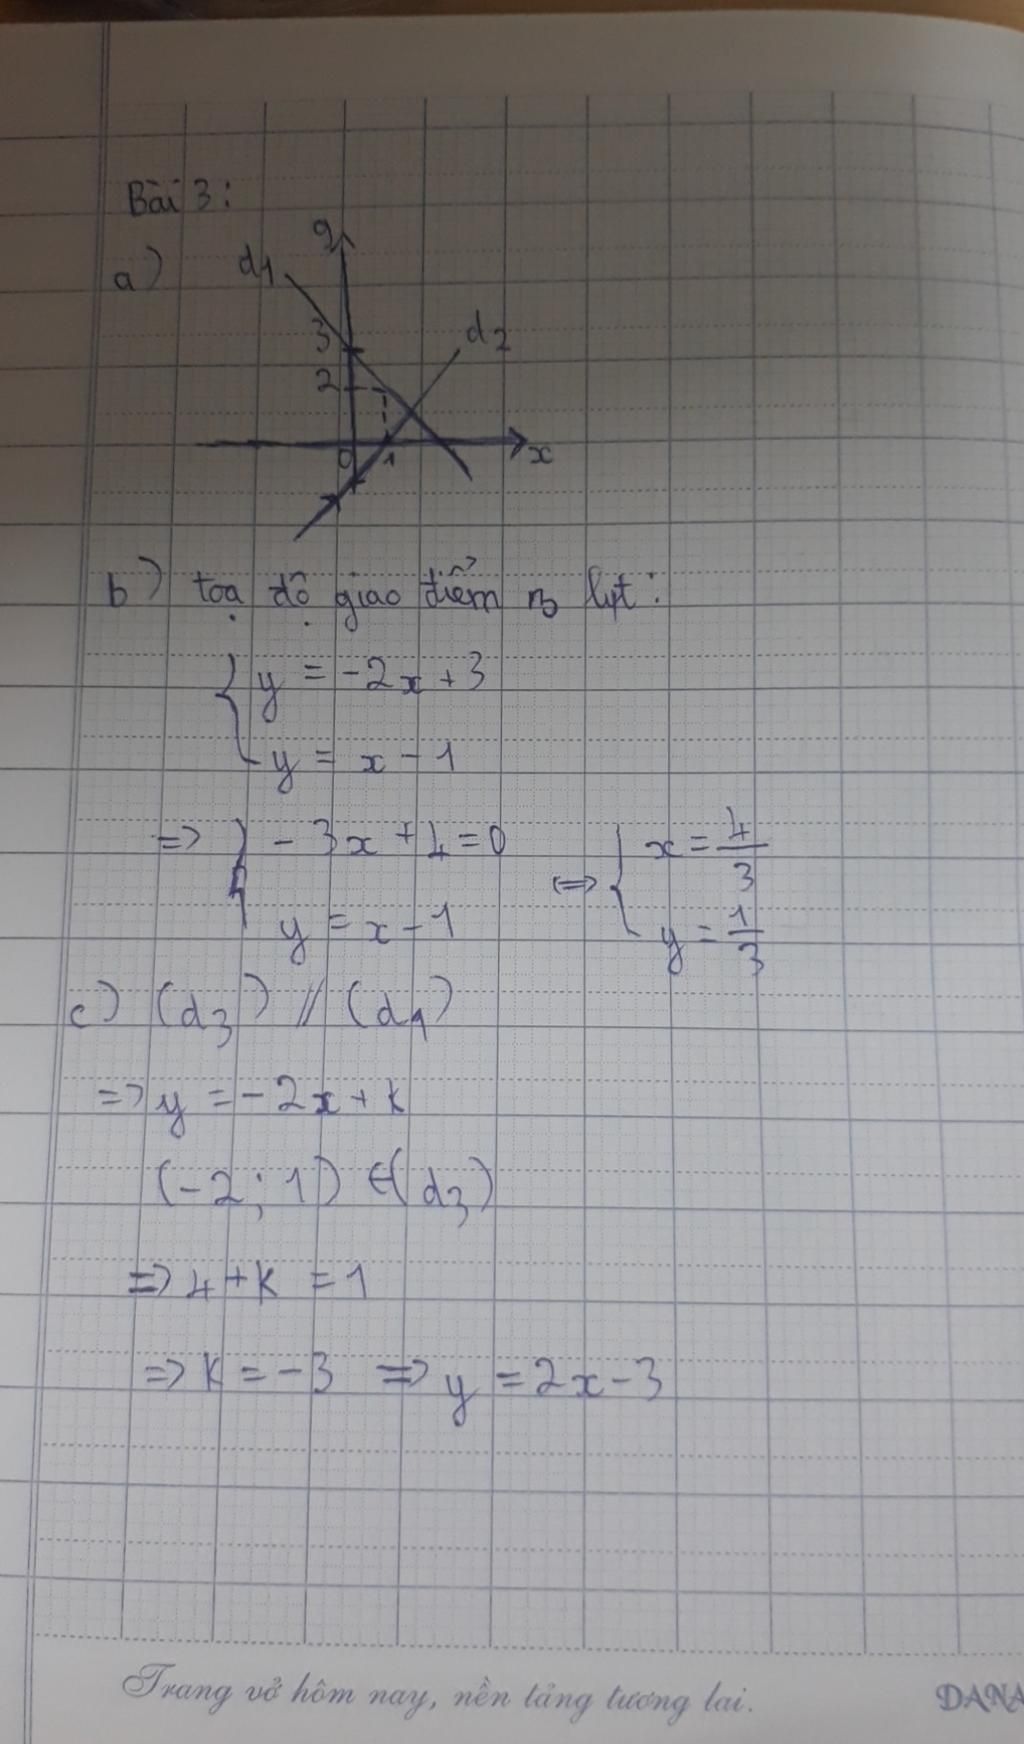 Bài 3:
a)
y
d1
3
d2
2
0
1
x
b) toạ độ giao điểm là :
{ y = -2x + 3
y = x - 1
=> { -3x + 4 = 0 <=> { x = 4/3
y = x - 1 y = 1/3
c) (d3) // (d1)
=> y = -2x + k
(-2; 1) ∈ (d3)
=> 4 + k = 1
=> k = -3 => y = 2x - 3
Trang vở hôm nay, nền tảng tương lai.
DANA